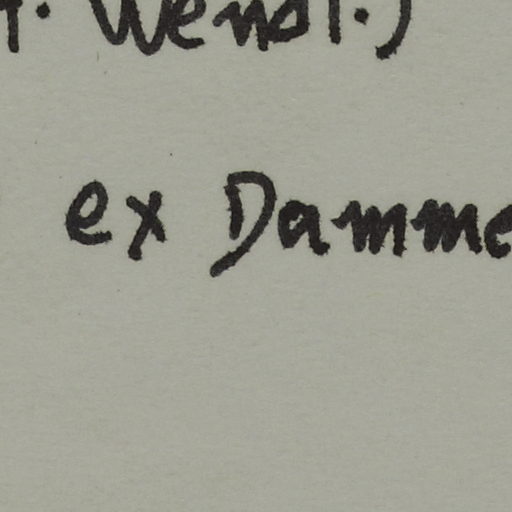 . Wendl.)
ex Damme